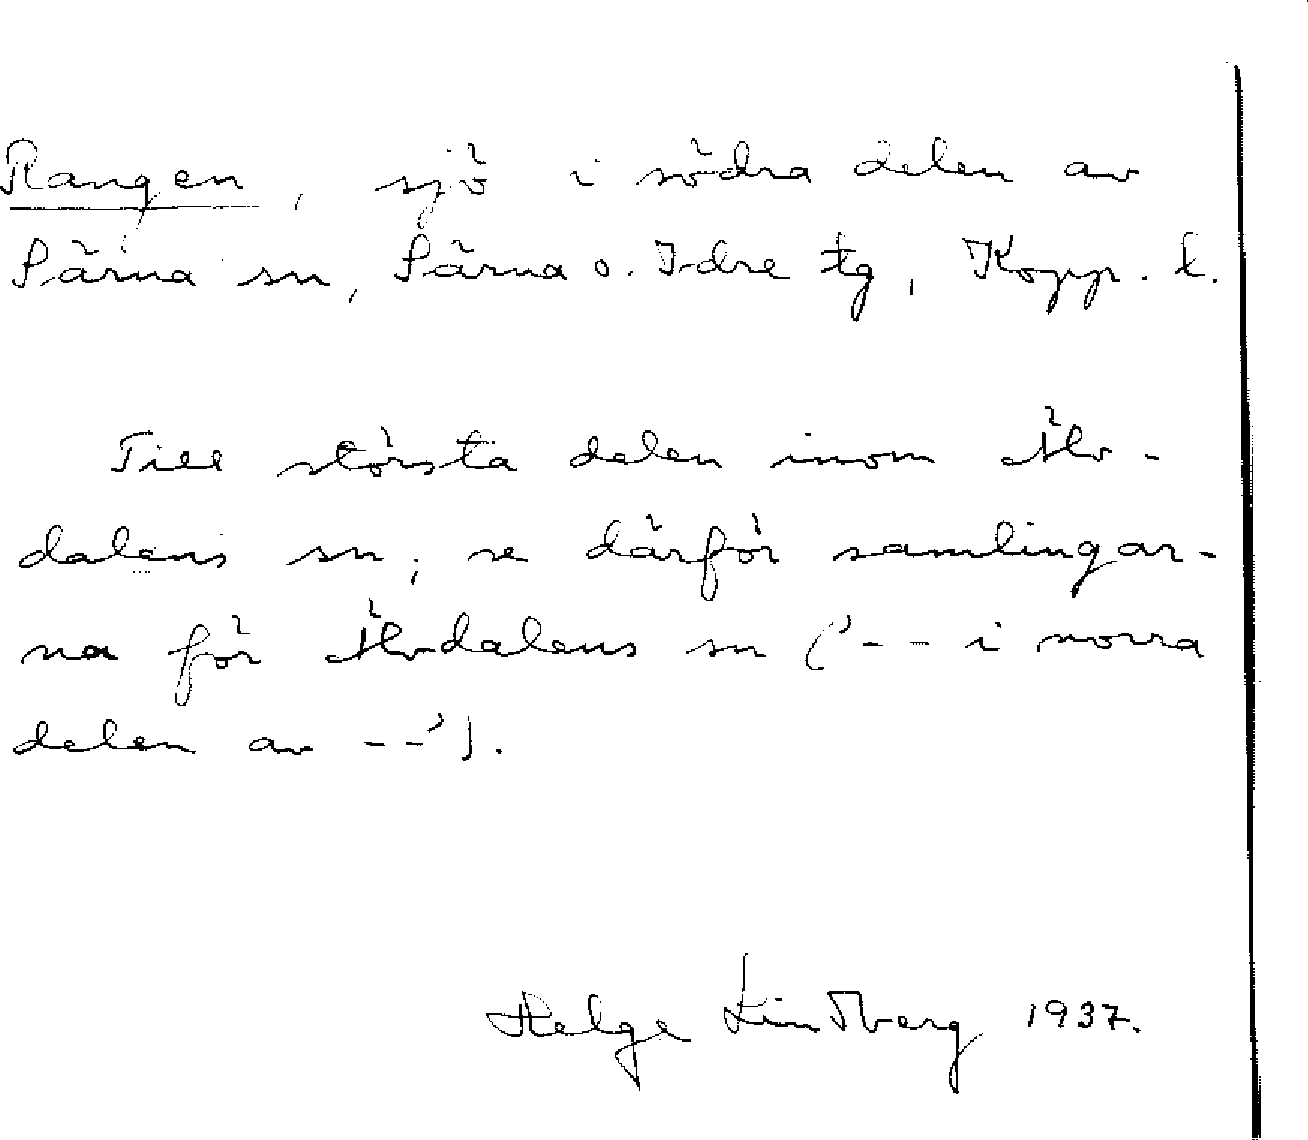 Rangen, sjö i södra delen av
Särna sn, Särna o. Idre tg, Kopp. l.
Till största delen inom Älv-
dalens sn; se därför samlingar-
na för Älvdalens sn (' -- i norra
delen av --').
Helge Lindberg 1937.